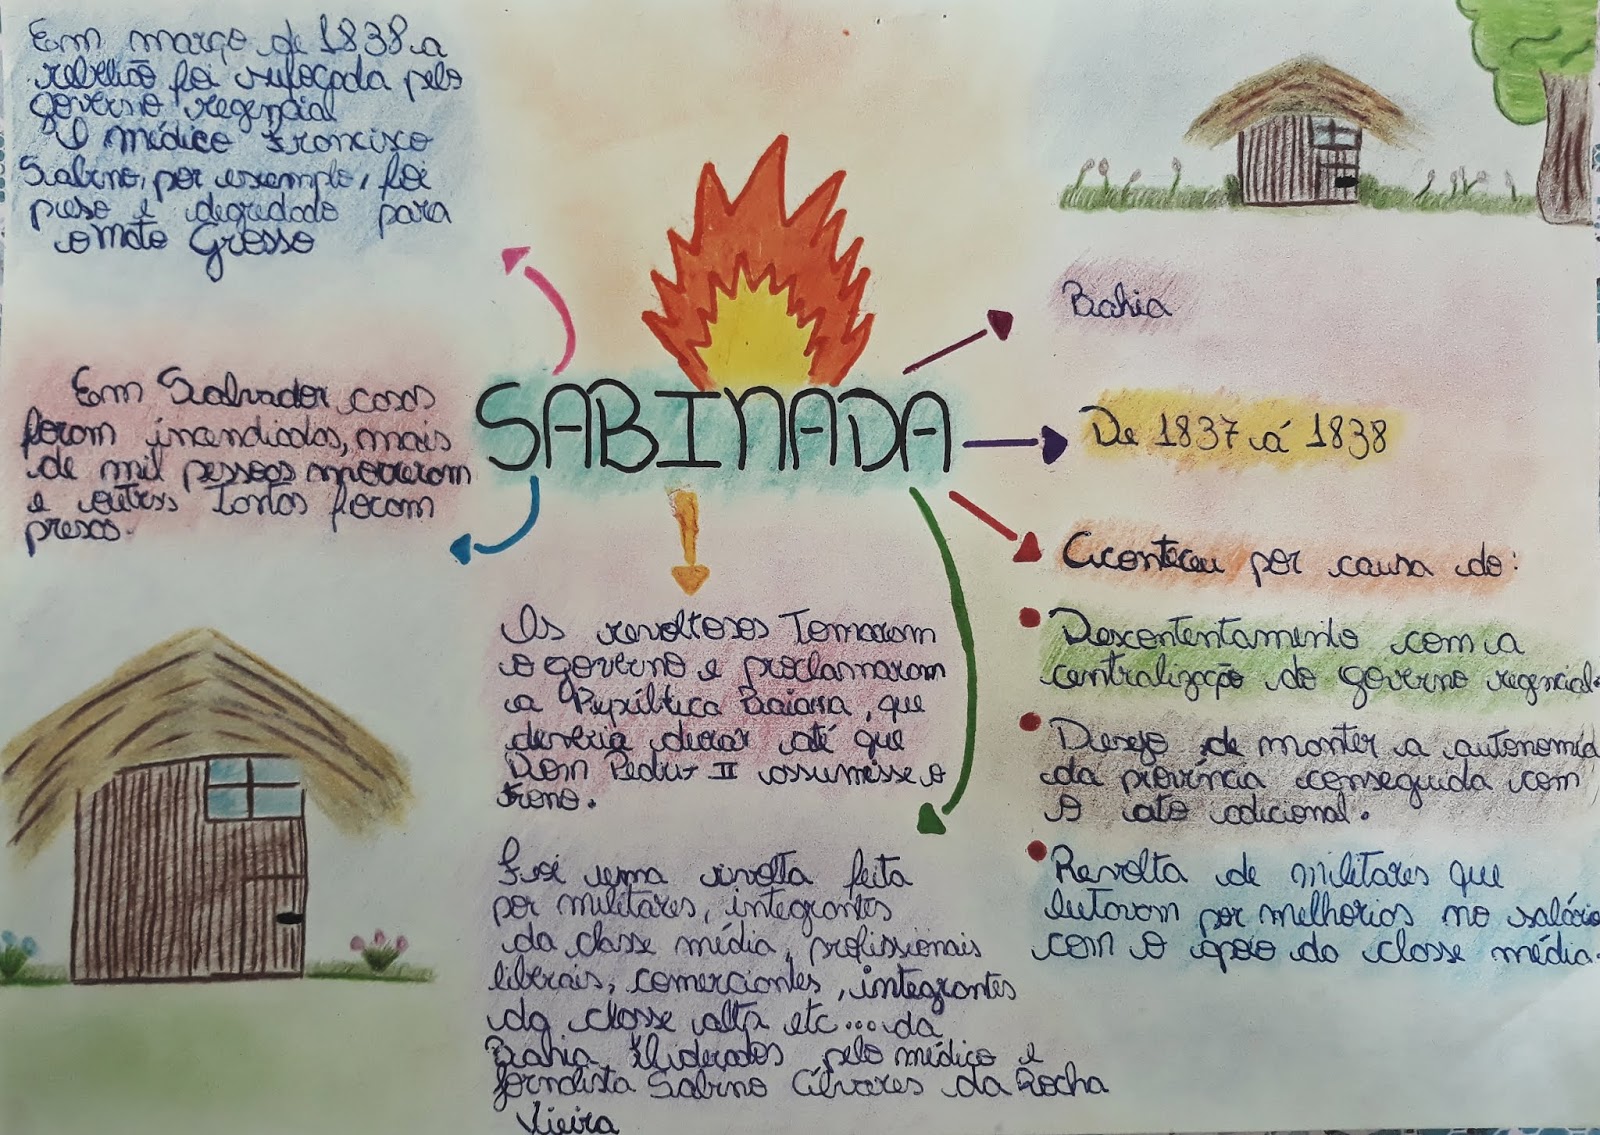 Em março de 1838 a
rebelião foi sufocada pelo
governo regencial
O médico Francisco
Sabino, por exemplo, foi
preso e degredado para
o Mato Grosso
Em Salvador casas
foram incendiadas, mais
de mil pessoas morreram
e outros tantos foram
presos.
SABINADA
Bahia
De 1837 á 1838
Aconteceu por causa do:
Descontentamento com a
centralização do governo regencial.
Desejo de manter a autonomia
da província conseguida com
o ato adicional.
Revolta de militares que
lutavam por melhorias no salário
com o apoio da classe média.
Os revoltosos tomaram
o governo e proclamaram
a República Baiana, que
deveria durar até que
Dom Pedro II assumisse o
trono.
Foi uma revolta feita
por militares, integrantes
da classe média, profissionais
liberais, comerciantes, integrantes
da classe alta etc... da
Bahia liderados pelo médico e
jornalista Sabino Álvares da Rocha
Vieira